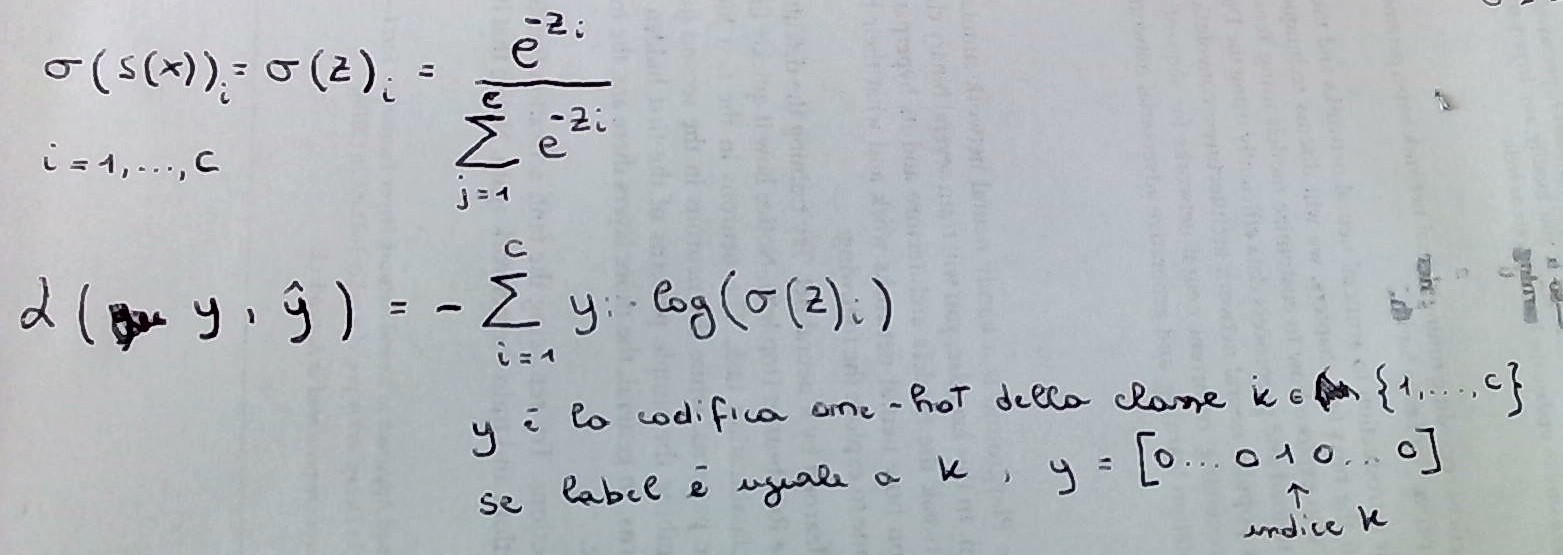 σ(s(x))_i = σ(z)_i = e^{-z_i} / Σ_{j=1}^{c} e^{-z_i}
i = 1, ..., c
L(y, ŷ) = - Σ_{i=1}^{c} y_i · log(σ(z)_i)
y è la codifica one-hot della classe k ∈ {1, ..., c}
se label è uguale a k, y = [0 ... 0 1 0 ... 0]
↑
indice k